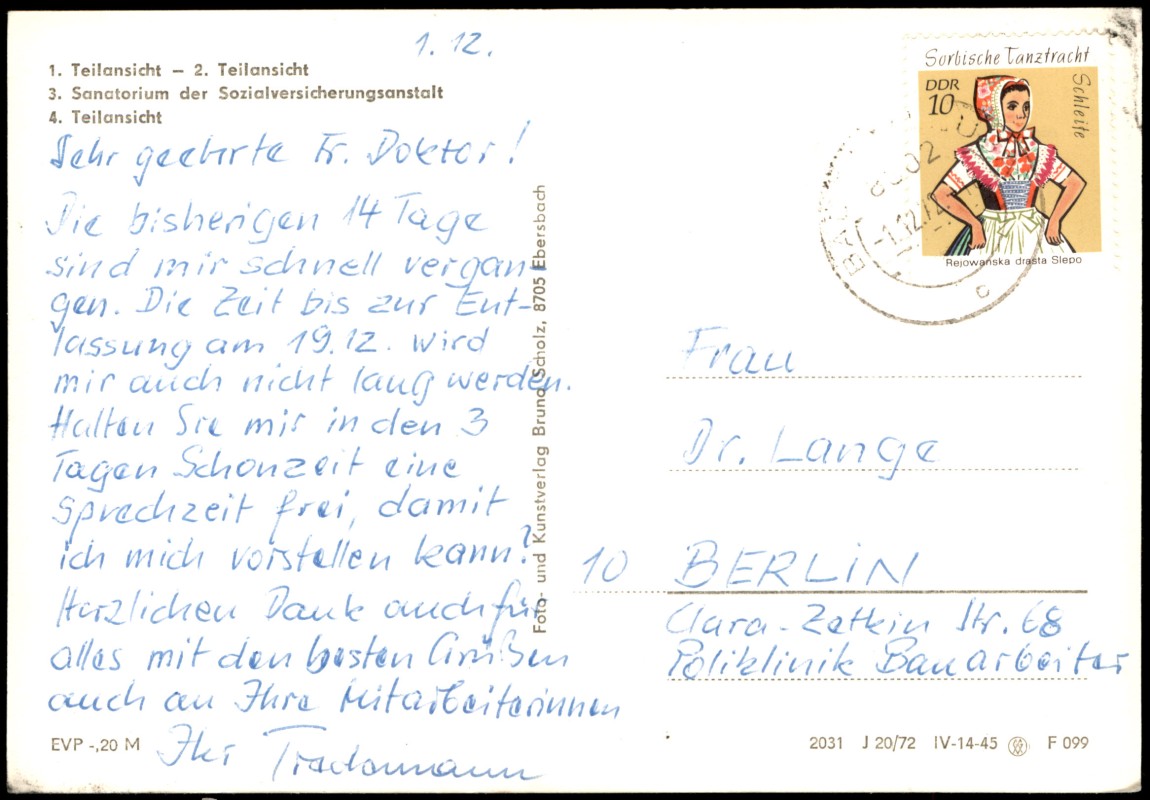 1.12.
1. Teilansicht – 2. Teilansicht
3. Sanatorium der Sozialversicherungsanstalt
4. Teilansicht
Sehr geehrte Fr. Doktor!
Die bisherigen 14 Tage
sind mir schnell vergan-
gen. Die Zeit bis zur Ent-
lassung am 19.12. wird
mir auch nicht lang werden.
Halten Sie mir in den 3
Tagen Schonzeit eine
Sprechzeit frei, damit
ich mich vorstellen kann?
Herzlichen Dank auch für
alles mit den besten Grüßen
auch an Ihre Mitarbeiterinnen
Ihr
EVP -,20 M
Foto- und Kunstverlag Bruno Scholz, 8705 Ebersbach
Sorbische Tanztracht
Schleife
DDR
10
Rejowańska drasta Slepo
-1.12.74
c
Frau
Dr. Lange
10 BERLIN
Clara-Zetkin Str. 68
Poliklinik Bauarbeiter
2031 J 20/72 IV-14-45 F 099